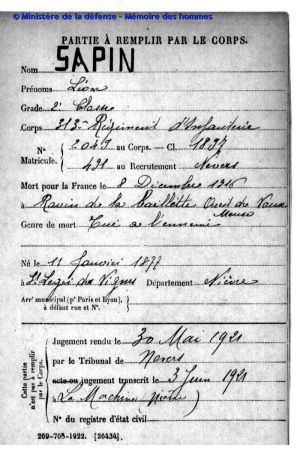 © Ministère de la défense - Mémoire des hommes
PARTIE À REMPLIR PAR LE CORPS.
Nom SAPIN
Prénoms Léon
Grade 2e Classe
Corps 213e Régiment d'Infanterie
N° Matricule. 2049 au Corps. — Cl. 1897
491 au Recrutement Nevers
Mort pour la France le 8 Décembre 1916
à Ravin de la Caillette Ouest de Vaux
Meuse
Genre de mort Tué à l'ennemi
Né le 11 Janvier 1877
à St Leger des Vignes Département Nièvre
Arrt municipal (pr Paris et Lyon),
à défaut rue et N°.
Cette partie
n'est pas à remplir
par le Corps.
Jugement rendu le 30 Mai 1921
par le Tribunal de Nevers
acte ou jugement transcrit le 3 Juin 1921
à La Machine (Nièvre)
N° du registre d'état civil
269-708-1922. [26434].